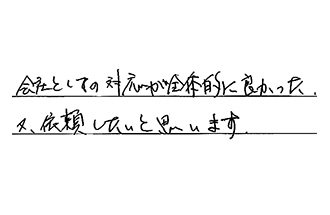 会社としての対応が全体的に良かった.
又、依頼したいと思います.